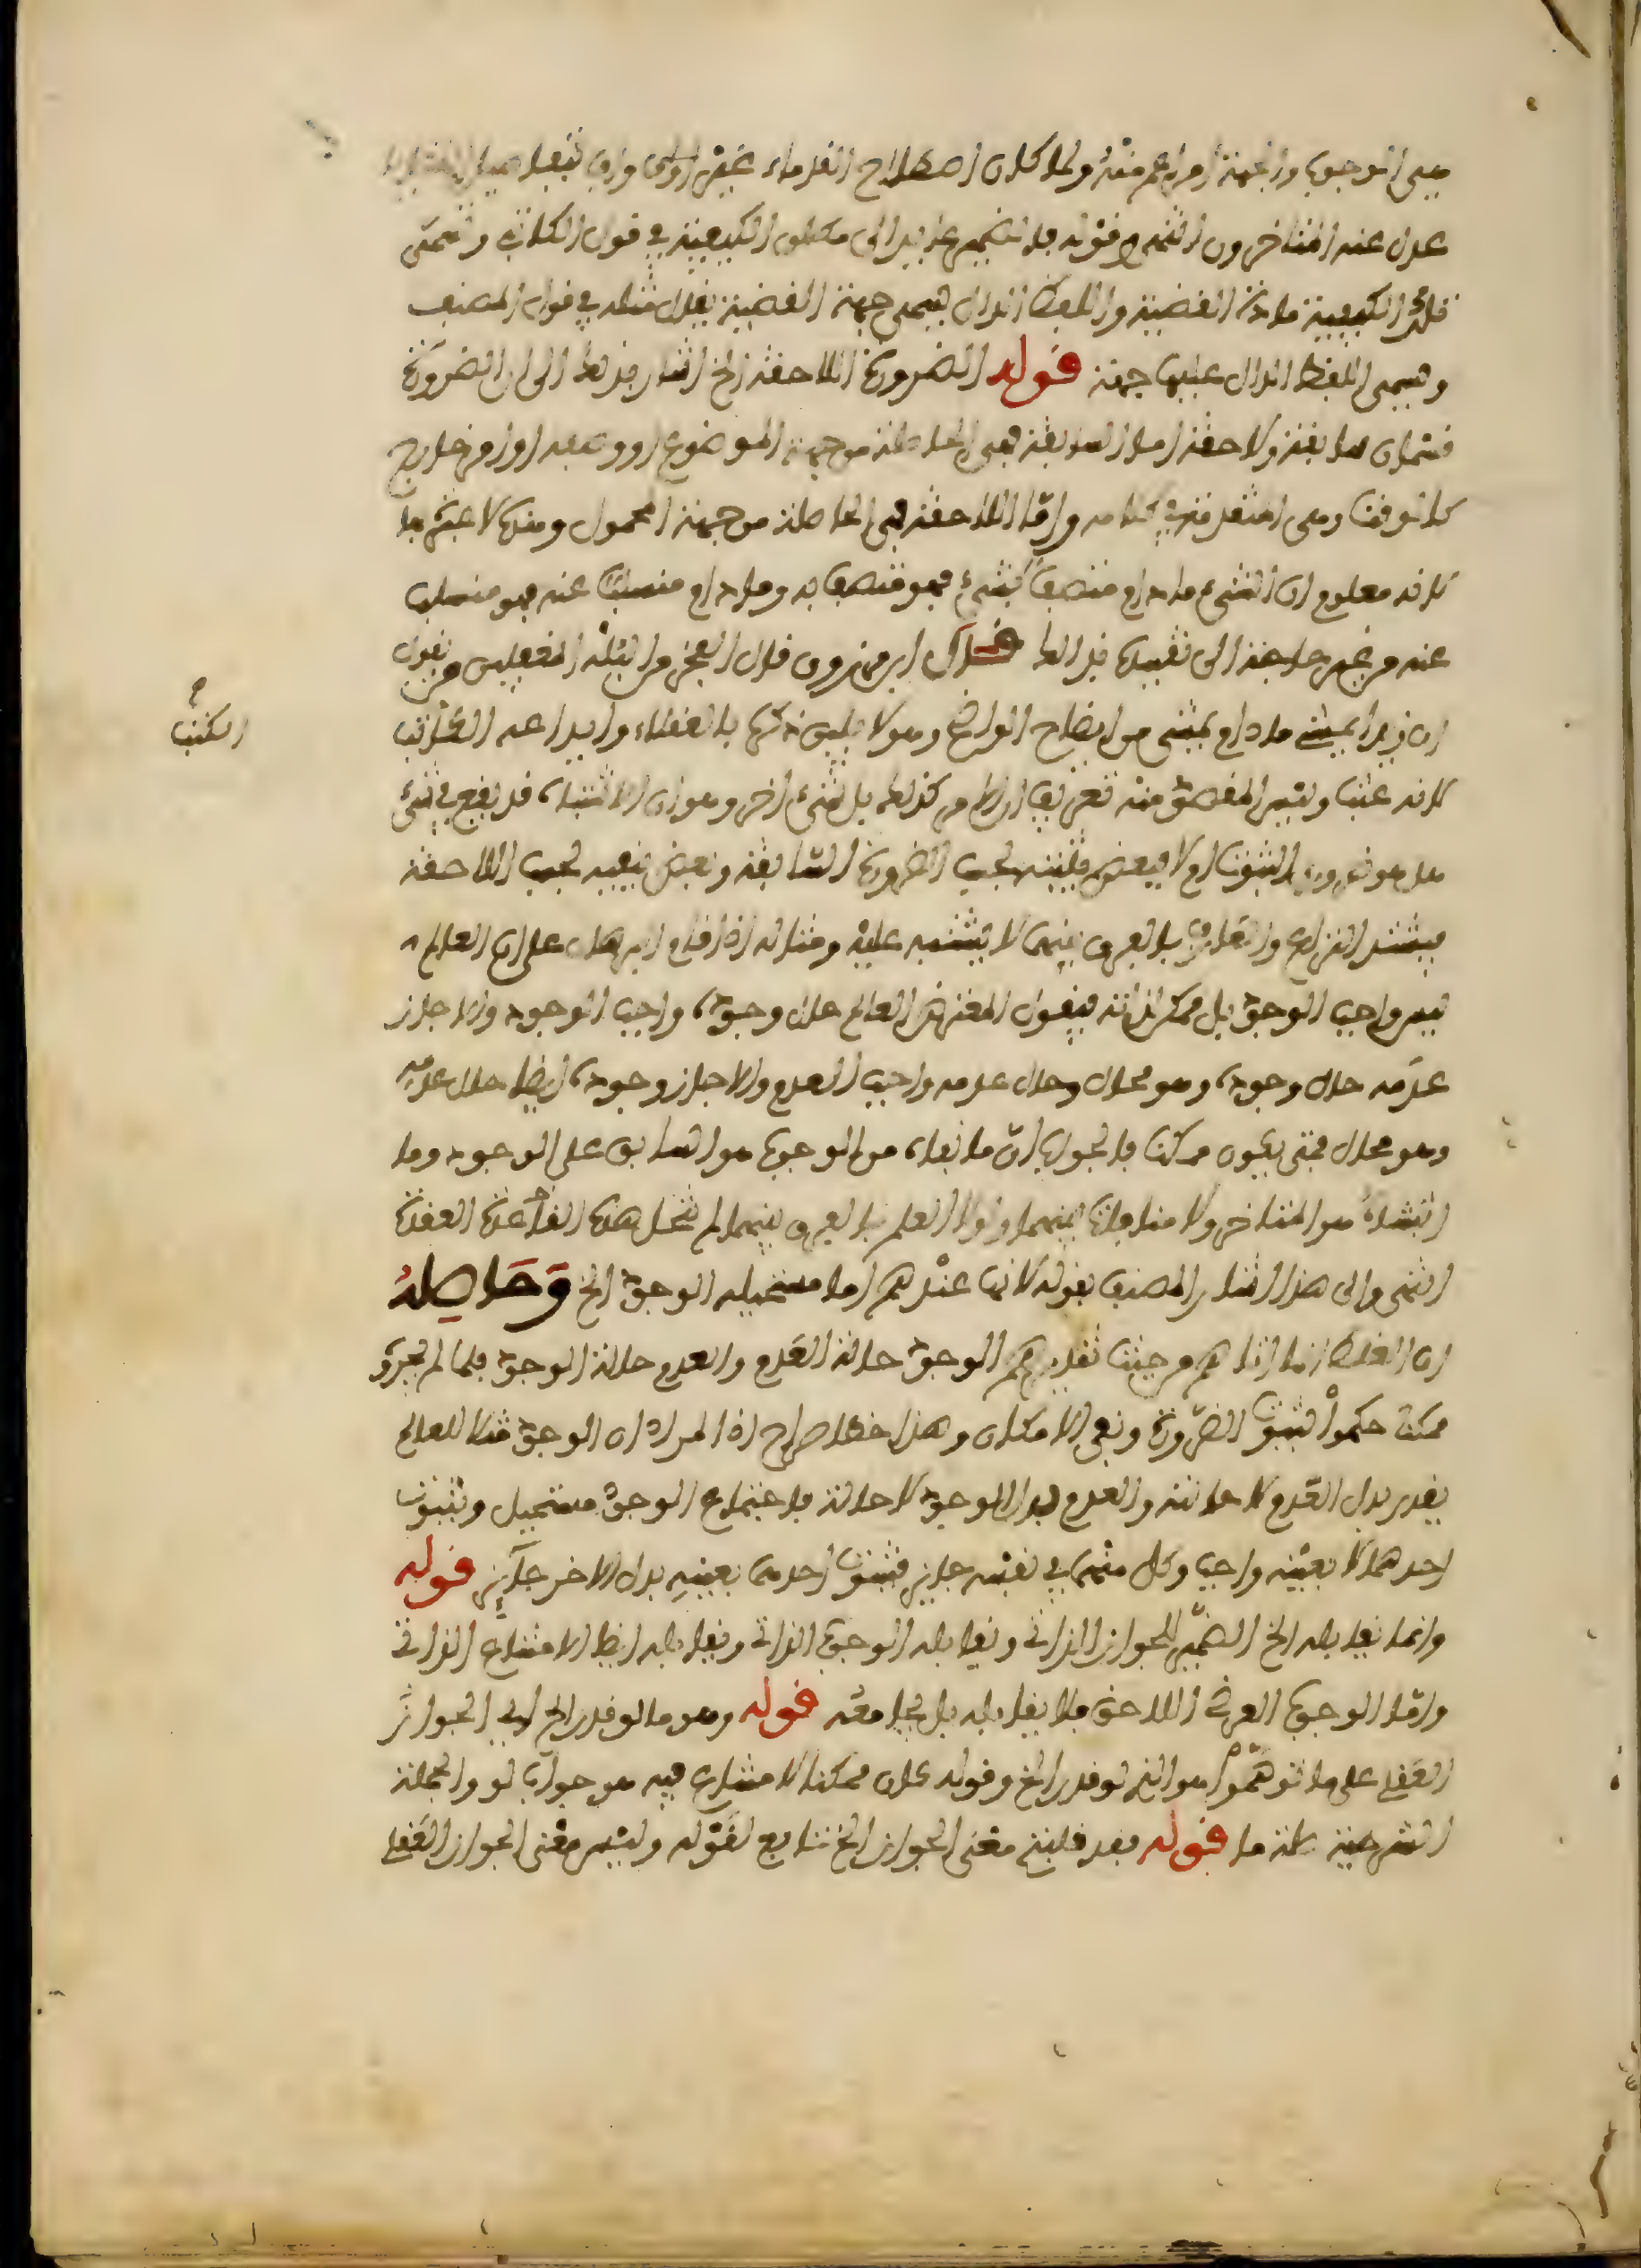 هي الوجوب والجهة أمر أعم منه ولما كان اصطلاح القدماء غير أولى
عدل عنه المتأخرون انتهى وقوله فالضمير عائد إلى مطلق الكيفية في قول الكاتبي وتسمى
تلك الكيفية مادة القضية واللفظ الدال يسمى جهة القضية يقال مثله في قول المصنف
ويسمى اللفظ الدال عليها جهة قوله الضرورة اللاحقة إلخ أشار بذلك إلى أن الضرورة
قسمان سابقة ولاحقة أما السابقة فهي الحاصلة من جهة الموضوع أو وصفه أو أمر خارج
كالوقت وهي المتقدمة في كلامه وأما اللاحقة فهي الحاصلة من جهة المحمول وهذه لا عبرة بها
لأنه معلوم أن الشيء ما دام متصفا بشيء فهو متصف به وما دام منسلبا عنه فهو منسلب
عنه من غير حاجة إلى تقييده بذلك قال ابن مرزوق قال الفخر من البله المغفلين من يقول
إن زيدا يمشي ما دام يمشي من إيضاح الواضح وهو لا يليق ذكره بالعقلاء وإيداعه الكتب
الكتب
لأنه عبث وليس المقصود منه تعريف الظاهر كذلك بل شيء آخر وهو أن الأشياء قد يقع في شيء
هل هو ضروري الثبوت أم لا فبعض يثبته بحسب الضرورة السابقة وبعض ينفيه بحسب اللاحقة
فيشتد النزاع والعارف بالفرق بينهما لا يشتبه عليه ومثاله إذا قام البرهان على أن العالم
ليس واجب الوجود بل ممكن لذاته فيقول المعترض العالم حال وجوده واجب الوجود وإلا جاز
عدمه حال وجوده وهو محال وحال عدمه واجب العدم وإلا جاز وجوده أيضا حال عدمه
وهو محال فمتى يكون ممكنا فالجواب أن ما نفاه من الوجوب هو السابق على الوجود وما
أثبته هو المتأخر ولا منافاة بينهما ولولا العلم بالفرق بينهما لم تنحل هذه القاعدة العقدة
انتهى وإلى هذا أشار المصنف بقوله لأنها عندهم إما مستحيلة الوجود إلخ وحاصله
أن الغلط إنما أتاهم من حيث تقديرهم الوجود حالة العدم والعدم حالة الوجود فلما لم يجدوه
ممكنا حكموا بثبوت الضرورة ونفي الإمكان وهذا خطأ صراح إذ المراد أن الوجود مثلا للعالم
يقدر بدل العدم لا حالته والعدم بدل الوجود لا حالة فاجتماع الوجود مستحيل وثبوت
أحدهما لا بعينه واجب وكل منهما في نفسه جائز فثبوت أحدهما بعينه بدل الآخر جائز قوله
وإنما يقابله إلخ الضمير للجواز الذاتي ويقابله الوجوب الذاتي ويقابله أيضا الامتناع الذاتي
وأما الوجوب العرضي اللاحق فلا يقابله بل يجامعه قوله وهو ما لو قدر إلخ أي الجواز
العقلي على ما توهموا هو الذي لو قدر إلخ وقوله كان ممكنا لا امتناع فيه هو جواب لو والجملة
الشرطية صلة ما قوله فقد قلبتم معنى الجواز إلخ تتابع لقوله وليس معنى الجواز العقلي